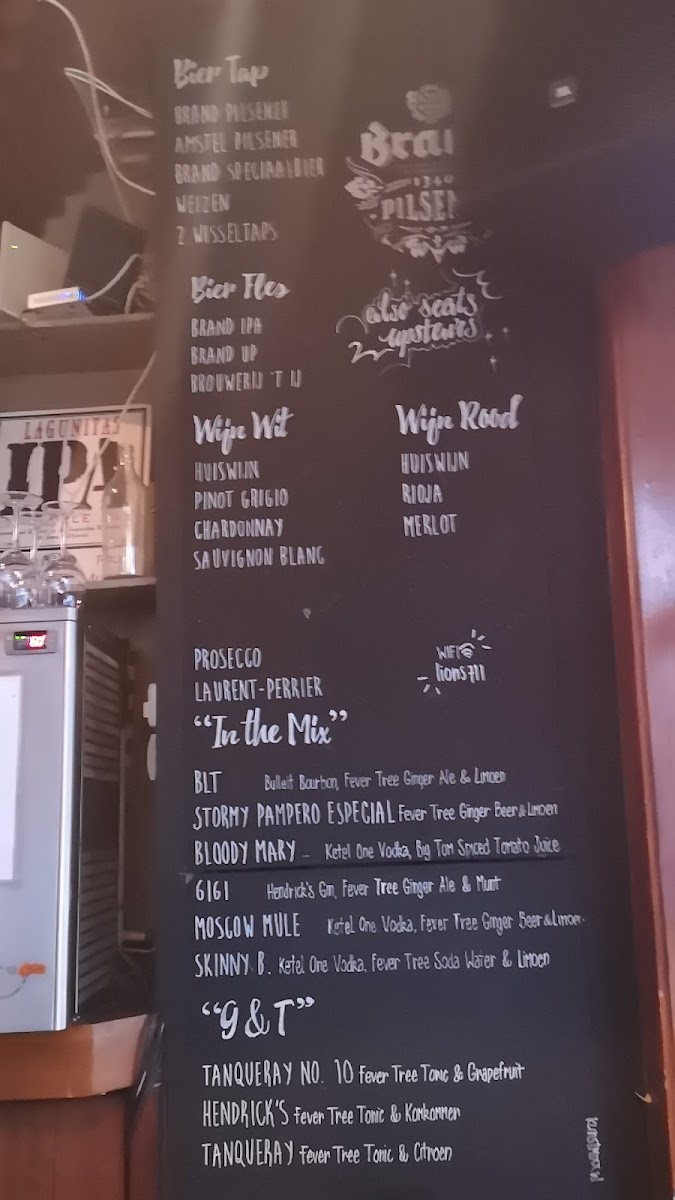 Bier Tap
BRAND PILSENER
AMSTEL PILSENER
BRAND SPECIAALBIER
WEIZEN
2 WISSELTAPS
Bra
1340
PILSEN
Bier Fles
BRAND IPA
BRAND UP
BROUWERIJ 'T IJ
also seats
upstairs
LAGUNITAS
IPA
Wijn Wit
HUISWIJN
PINOT GRIGIO
CHARDONNAY
SAUVIGNON BLANC
Wijn Rood
HUISWIJN
RIOJA
MERLOT
PROSECCO
LAURENT-PERRIER
WIFI
lions711
"In the Mix"
BLT Bulleit Bourbon, Fever Tree Ginger Ale & Limoen
STORMY PAMPERO ESPECIAL Fever Tree Ginger Beer & Limoen
BLOODY MARY - Ketel One Vodka, Big Tom Spiced Tomato Juice
GIGI Hendrick's Gin, Fever Tree Ginger Ale & Munt
MOSCOW MULE Ketel One Vodka, Fever Tree Ginger Beer & Limoen
SKINNY B. Ketel One Vodka, Fever Tree Soda Water & Limoen
"G & T"
TANQUERAY NO. 10 Fever Tree Tonic & Grapefruit
HENDRICK'S Fever Tree Tonic & Komkommer
TANQUERAY Fever Tree Tonic & Citroen